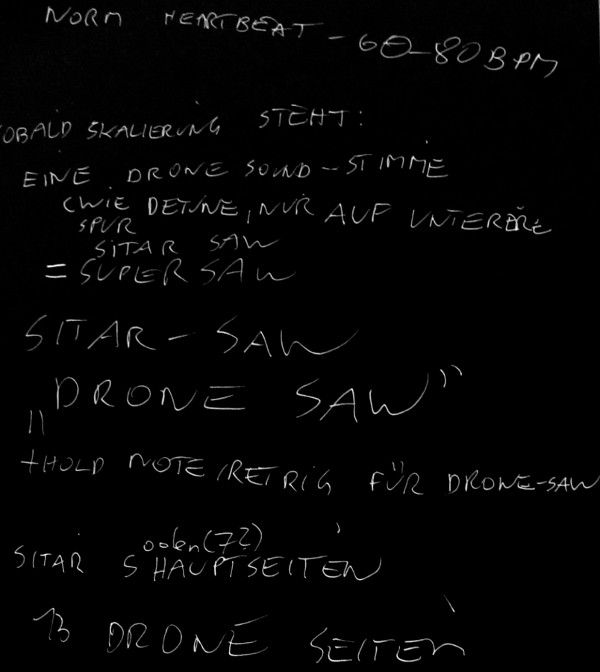 NORM HEARTBEAT - 60-80 BPM
SOBALD SKALIERUNG STEHT:
EINE DRONE SOUND-STIMME
(WIE DETUNE, NUR AUF
SPUR
SITAR SAW
= SUPER SAW
SITAR-SAW
„DRONE SAW"
+HOLD NOTE/RETRIG FÜR DRONE-SAW
oder(7?)
SITAR 5 HAUPTSEITEN
13 DRONE SEITEN